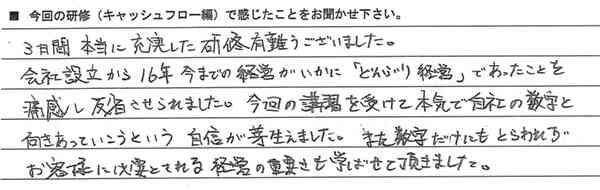 ■ 今回の研修（キャッシュフロー編）で感じたことをお聞かせ下さい。
3日間 本当に充実した研修有難うございました。
会社設立から16年 今までの経営がいかに「どんぶり経営」であったことを
痛感し 反省させられました。今回の講習を受けて本気で自社の数字と
向きあっていこうという 自信が芽生えました。また数字だけにもとらわれず
お客様に必要とされる 経営の重要さも学ばせて頂きました。